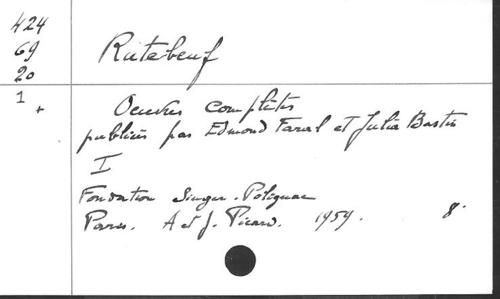 424
69
20
1 +
Rutebeuf
Oeuvres complètes
publiées par Edmond Faral et Julia Bastin
I
Fondation Singer-Polignac
Paris. A et J. Picard. 1959. 8°